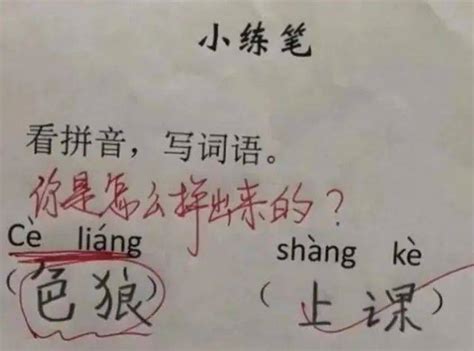 小练笔
看拼音，写词语。
你是怎么拼出来的？
Cè liáng shàng kè
（色狼） （上课）